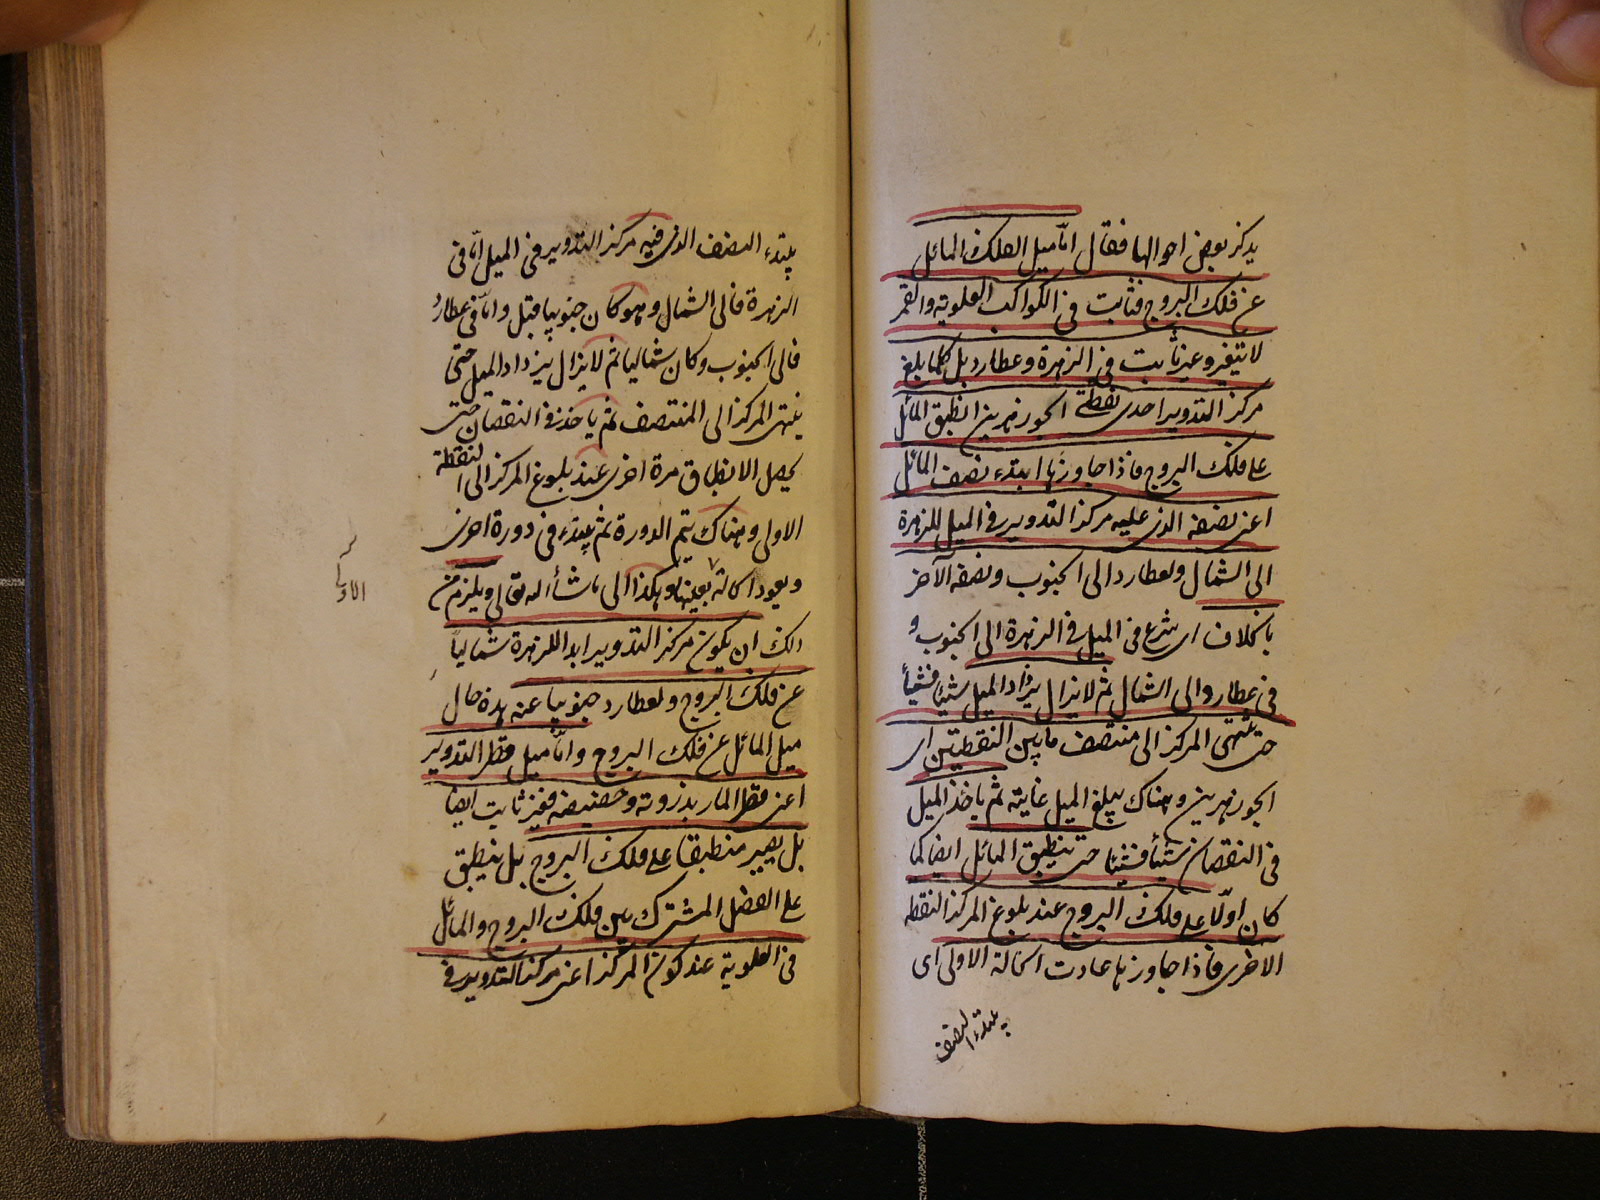 يذكر بعض احوالها فقال اما ميل الفلك المائل
عن فلك البروج فثابت فى الكواكب العلوية والقمر
لا يتغير وغير ثابت فى الزهرة وعطارد بل كلما بلغ
مركز التدوير احدى نقطتى الجوزهرين انطبق المائل
على فلك البروج فاذا جاوزها ابتدء نصف المائل
اعنى نصفه الذى عليه مركز التدوير فى الميل للزهرة
الى الشمال ولعطارد الى الجنوب ونصفه الآخر
بالخلاف اى شرع فى الميل فى الزهرة الى الجنوب و
فى عطارد الى الشمال ثم لا يزال يزداد الميل شيئا فشيئا
حتى ينتهى المركز الى منتصف ما بين النقطتين اى
الجوزهرين وهناك يبلغ الميل غايته ثم ياخذ الميل
فى النقصان شيئا فشيئا حتى ينطبق المائل ايضا كما
كان اولا على فلك البروج عند بلوغ المركز النقطة
الاخرى فاذا جاوزها عادت الحالة الاولى اى
يبتدء النصف
يبتدء النصف الذى فيه مركز التدوير فى الميل اما فى
الزهرة فالى الشمال وهو كان جنوبيا قبل واما فى عطارد
فالى الجنوب وكان شماليا ثم لا يزال يزداد الميل حتى
ينتهى المركز الى المنتصف ثم ياخذ فى النقصان حتى
يحصل الانطباق مرة اخرى عند بلوغ المركز الى النقطة
الاولى وهناك يتم الدورة ثم يبتدء فى دورة اخرى
ويعود الحالة بعينها وهكذا الى ما شأ الله تعالى ويلزم من
ذلك ان يكون مركز التدوير ابدا للزهرة شماليا
عن فلك البروج ولعطارد جنوبيا عنه هذه حال
ميل المائل عن فلك البروج واما ميل قطر التدوير
اعنى قطر المار بذروته وحضيضه فغير ثابت ايضا
بل يصير منطبقا على فلك البروج بل ينطبق
على الفصل المشترك بين فلك البروج والمائل
فى العلوية عند كون المركز اعنى مركز التدوير فى